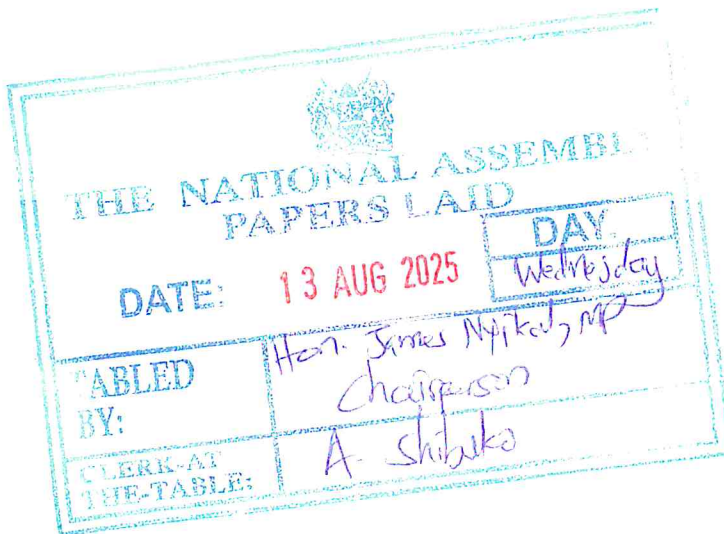 THE NATIONAL ASSEMBL
PAPERS LAID
DATE: 13 AUG 2025
DAY.
Wednesday
TABLED BY:
Hon. James Nyikal, MP
Chairperson
CLERK-AT THE-TABLE:
A. Shibuko